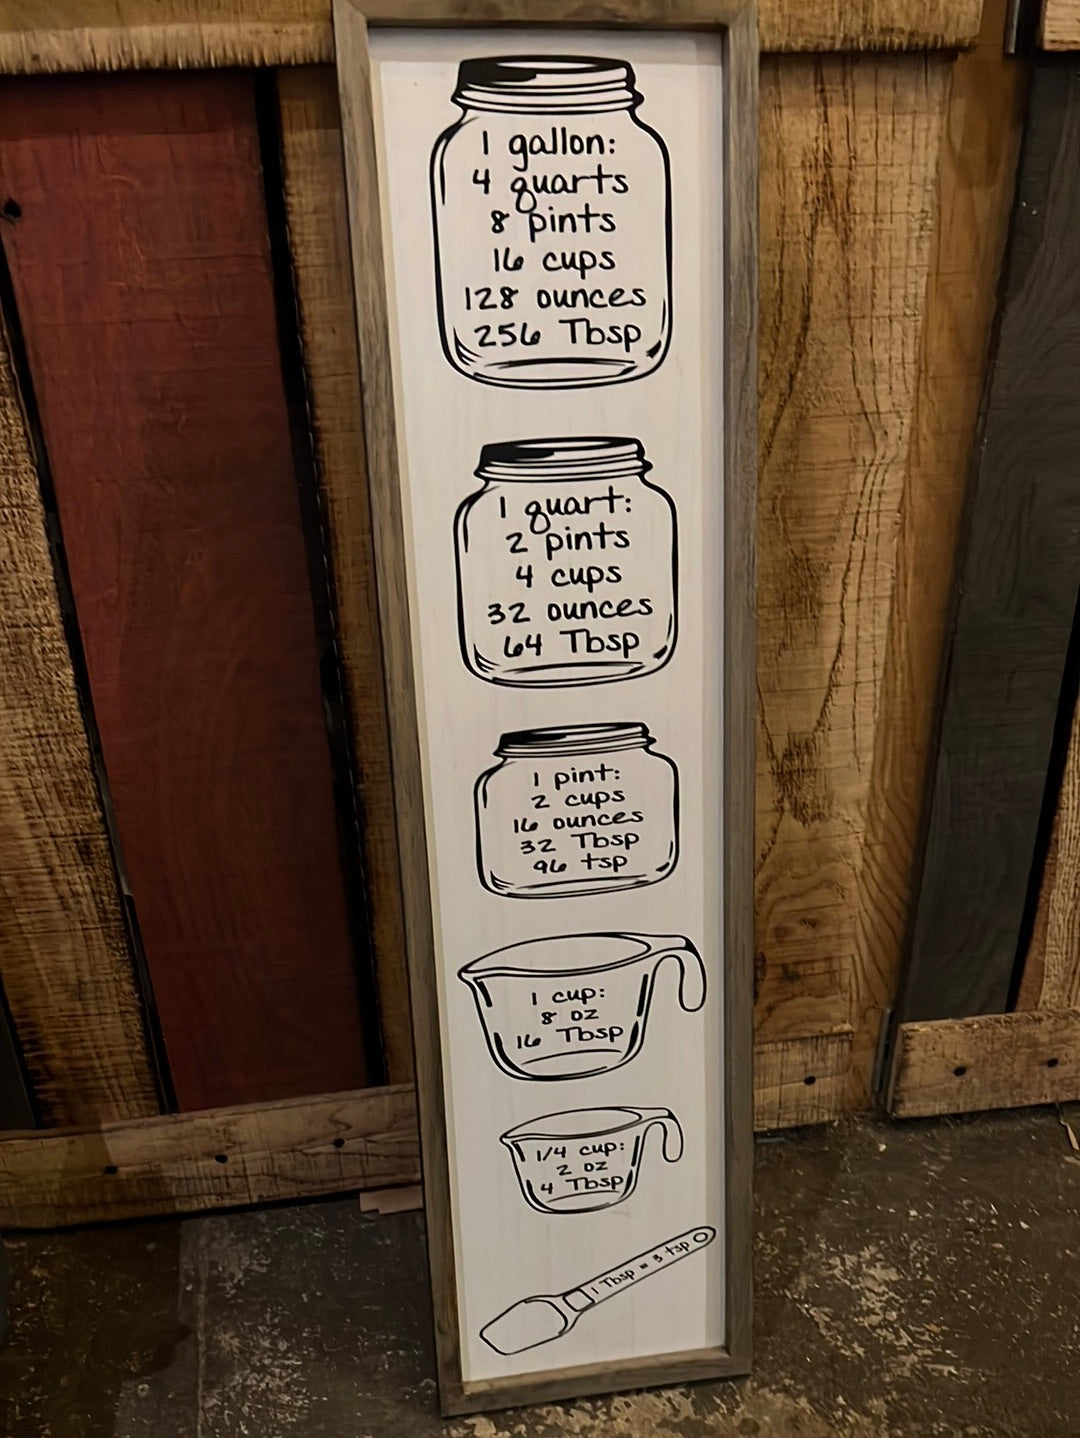 1 gallon:
4 quarts
8 pints
16 cups
128 ounces
256 Tbsp
1 quart:
2 pints
4 cups
32 ounces
64 Tbsp
1 pint:
2 cups
16 ounces
32 Tbsp
96 tsp
1 cup:
8 oz
16 Tbsp
1/4 cup:
2 oz
4 Tbsp
1 Tbsp = 3 tsp